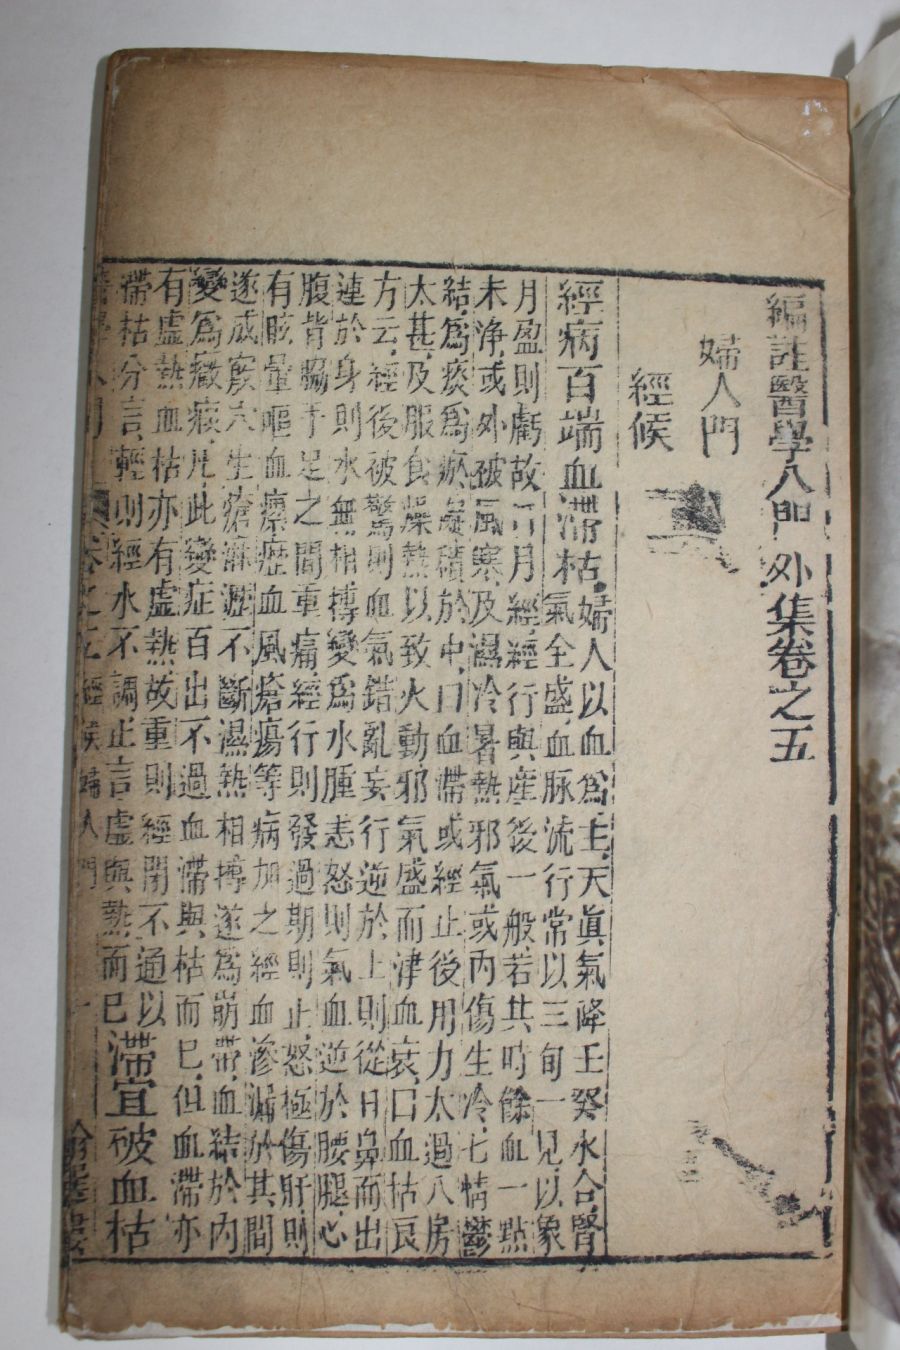 編註醫學入門外集卷之五
婦人門
經候
經病百端血滯枯婦人以血爲主天眞氣降壬癸水合腎
氣全盛血脉流行常以三旬一見以象
月盈則虧故曰月經經行與產後一般若其時餘血一點
未淨或外被風寒及濕冷暑熱邪氣或內傷生冷七情鬱
結爲痰爲瘀凝積於中曰血滯或經止後用力太過入房
太甚及服食燥熱以致火動邪氣盛而津血衰曰血枯良
方云經後被驚則血氣錯亂妄行逆於上則從口鼻而出
連於身則水無相搏變爲水腫恚怒則氣血逆於腰腿心
腹背脇手足之間重痛經行則發過期則止怒極傷肝則
有眩暈嘔血瘰癧血風瘡瘍等病加之經血滲漏於其間
遂成竅穴生瘡淋瀝不斷濕熱相摶遂爲崩帶血結於內
變爲癥瘕凡此變症百出不過血滯與枯而已但血滯亦
有虛熱血枯亦有虛熱故重則經閉不通以
滯枯分言輕則經水不調止言虛與熱而已滯宜破血枯
醫學入門 卷之五 經候婦人門 一